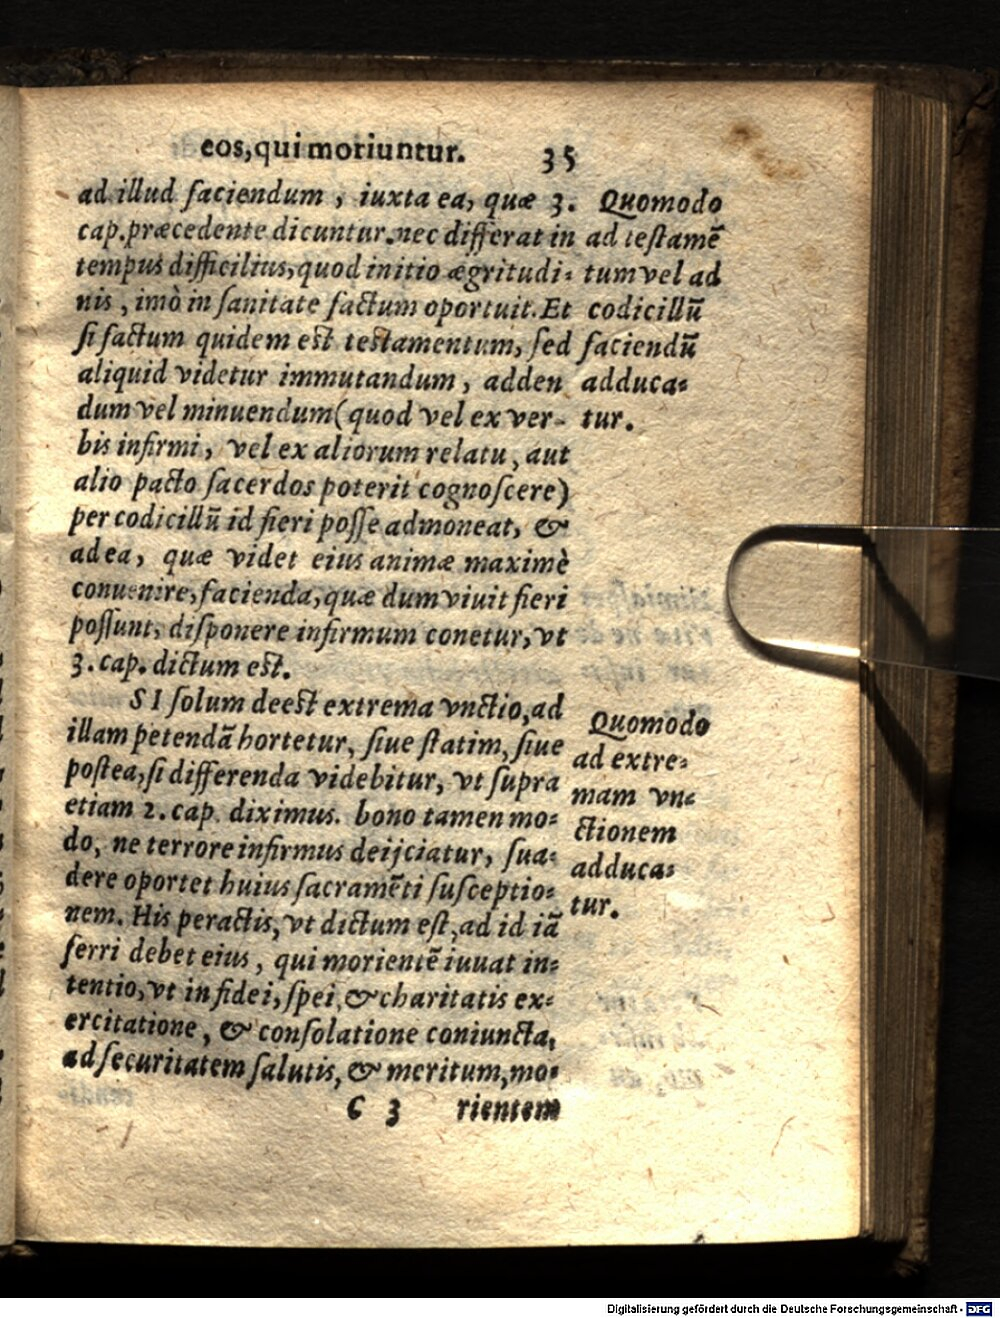 eos, qui moriuntur. 35
ad illud faciendum, iuxta ea, quæ 3.
cap. præcedente dicuntur. nec differat in
tempus difficilius, quod initio ægritudi-
nis, imò in sanitate factum oportuit. Et
si factum quidem est testamentum, sed
aliquid videtur immutandum, adden
dum vel minuendum (quod vel ex ver-
bis infirmi, vel ex aliorum relatu, aut
alio pacto sacerdos poterit cognoscere)
per codicillū id fieri posse admoneat, &
ad ea, quæ videt eius animæ maximè
conuenire, facienda, quæ dum viuit fieri
possunt, disponere infirmum conetur, vt
3. cap. dictum est.
Quomodo
ad testamē
tum vel ad
codicillū
faciendū
adduca-
tur.
SI solum deest extrema vnctio, ad
illam petendā hortetur, siue statim, siue
postea, si differenda videbitur, vt supra
etiam 2. cap. diximus. bono tamen mo-
do, ne terrore infirmus deijciatur, sua-
dere oportet huius sacramēti susceptio-
nem. His peractis, vt dictum est, ad id iā
ferri debet eius, qui morientē iuuat in-
tentio, vt in fidei, spei, & charitatis ex-
ercitatione, & consolatione coniuncta,
ad securitatem salutis, & meritum, mo-
Quomodo
ad extre-
mam vn-
ctionem
adduca-
tur.
C 3 rientem
Digitalisierung gefördert durch die Deutsche Forschungsgemeinschaft - DFG